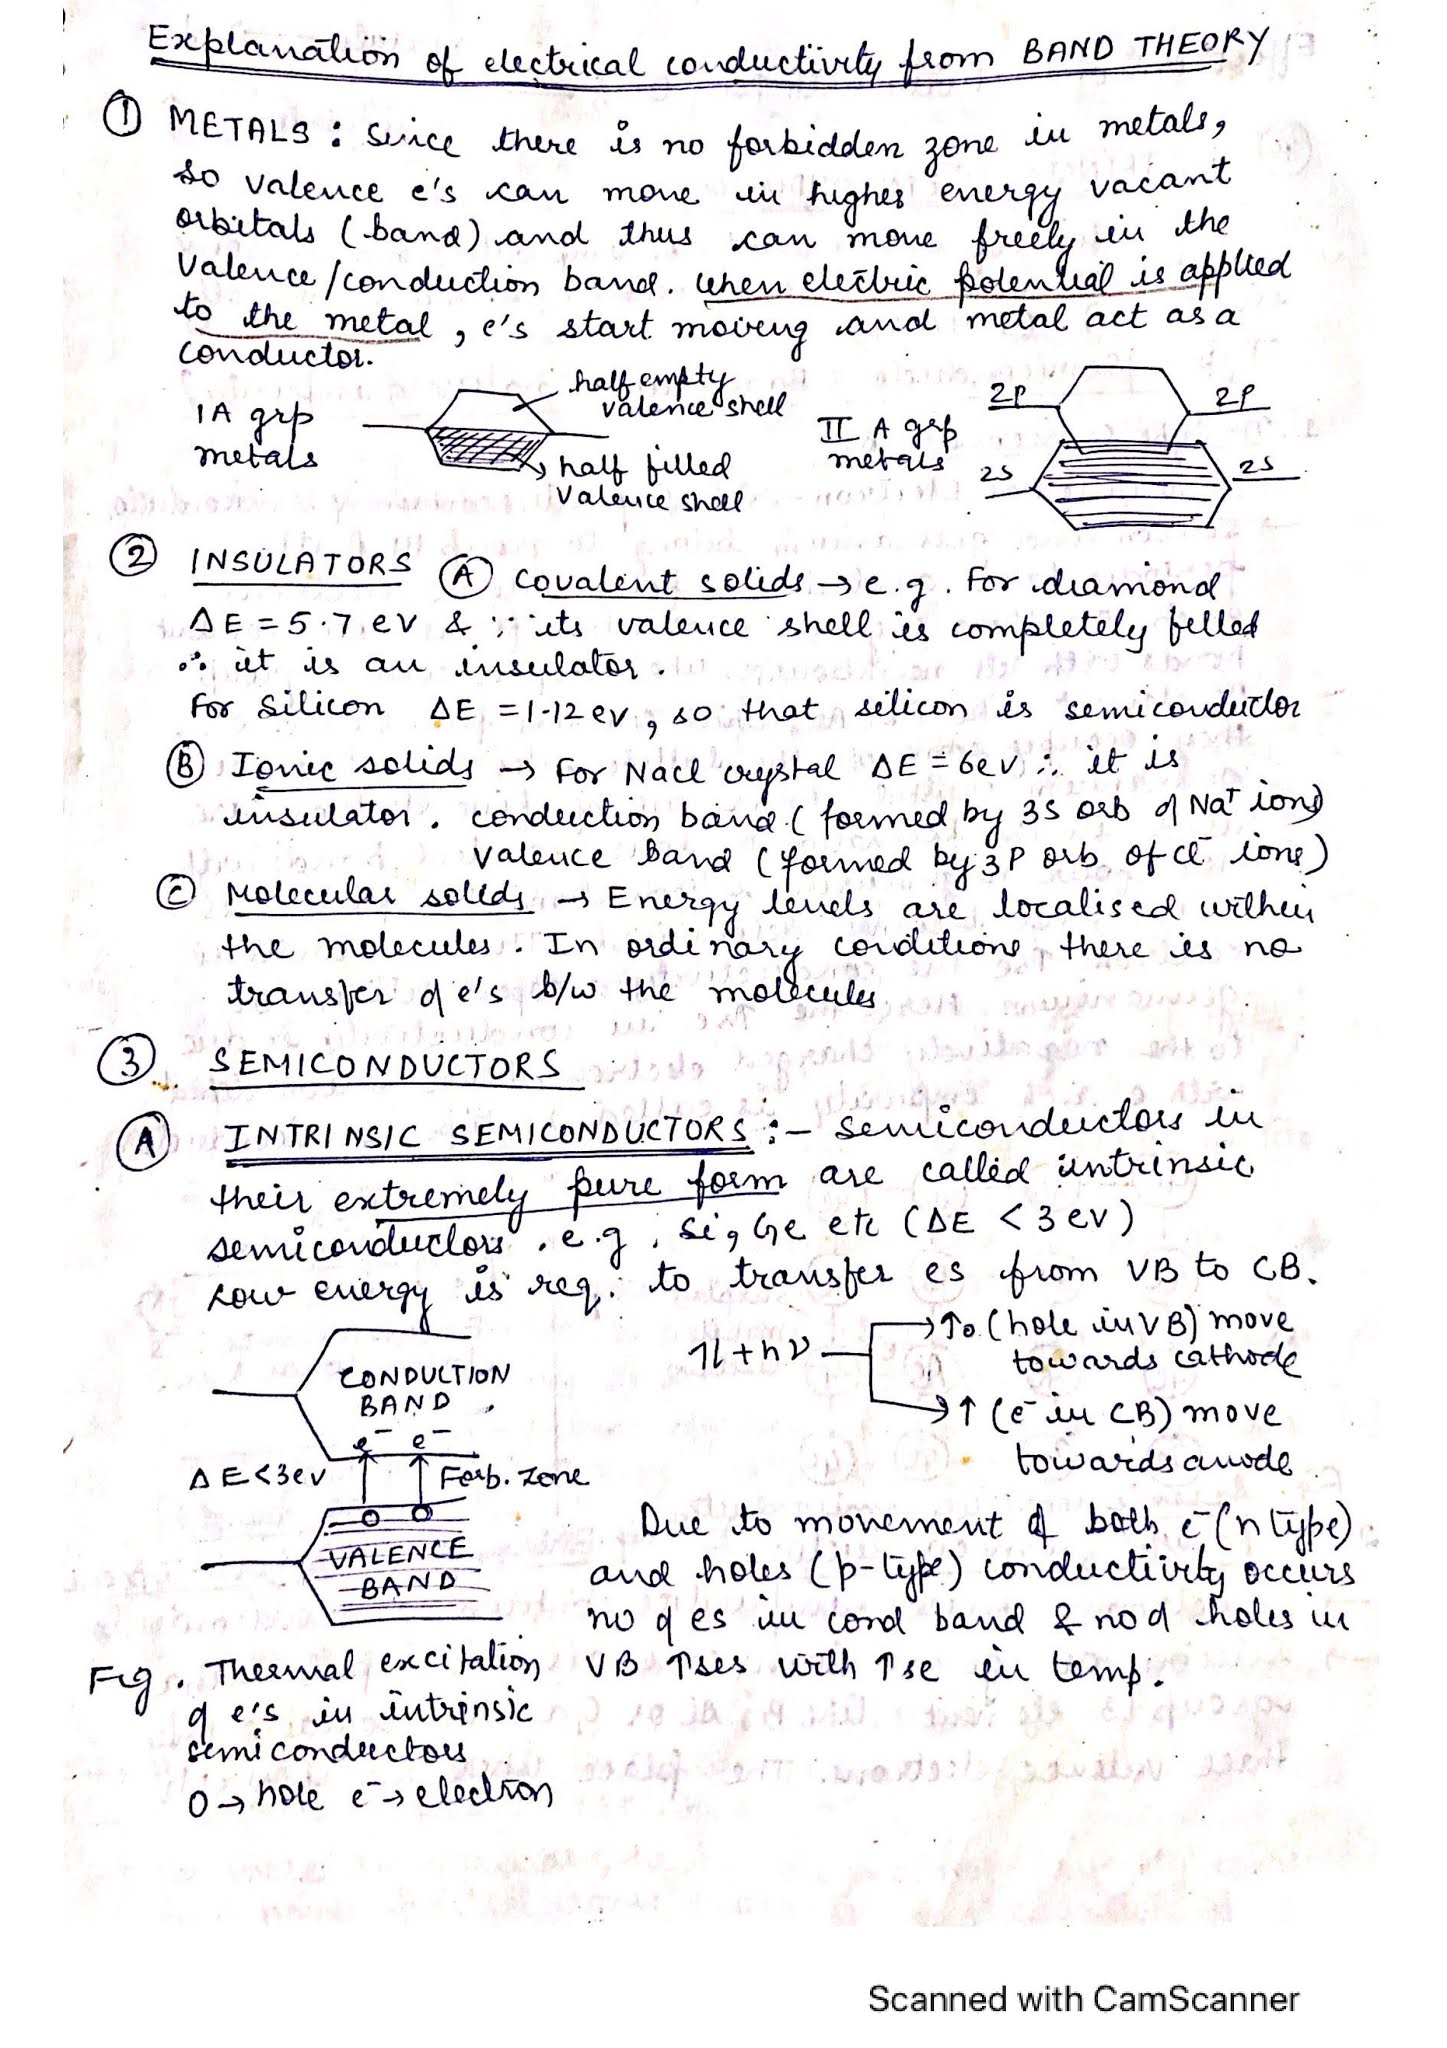 Explanation of electrical conductivity from BAND THEORY
① METALS : Since there is no forbidden zone in metals,
so valence e's can move in higher energy vacant
orbitals (band) and thus can move freely in the
Valence/conduction band. When electric potential is applied
to the metal, e's start moving and metal act as a
conductor.
IA grp
metals
half empty
valence shell
half filled
Valence shell
II A grp
metals
2P 2P
2S 2S
② INSULATORS Ⓐ Covalent solids → e.g. For diamond
ΔE = 5.7 ev & ∵ its valence shell is completely filled
∴ it is an insulator.
For Silicon ΔE = 1.12 ev, so that silicon is semiconductor
Ⓑ Ionic solids → For Nacl crystal ΔE = 6ev ∴ it is
insulator. conduction band (formed by 3S orb of Na⁺ ions)
Valence band (formed by 3P orb. of Cl⁻ ions)
Ⓒ Molecular solids → Energy levels are localised within
the molecules. In ordinary conditions there is no
transfer of e's b/w the molecules
③ SEMICONDUCTORS
Ⓐ INTRINSIC SEMICONDUCTORS :- Semiconductors in
their extremely pure form are called intrinsic
semiconductors. e.g. Si, Ge etc (ΔE < 3 ev)
Low energy is req. to transfer es from VB to CB.
CONDUCTION
BAND
e⁻ e⁻
ΔE<3ev Forb. zone
VALENCE
BAND
1l + hν
→ ↑o (hole in VB) move
towards cathode
→ ↑ (e⁻ in CB) move
towards anode
Due to movement of both e⁻ (n type)
and holes (p-type) conductivity occurs
no of es in cond band & no of holes in
VB ↑ses with ↑se in temp.
Fig. Thermal excitation
of e's in intrinsic
semiconductors
O → hole e⁻ → electron
Scanned with CamScanner